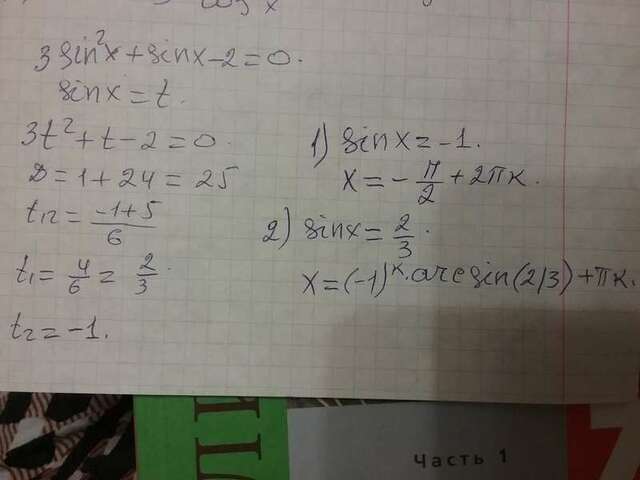 cos x
3 sin²x + sinx - 2 = 0.
sinx = t.
3t² + t - 2 = 0.
D = 1 + 24 = 25
t₁₂ = (-1+5)/6
t₁ = 4/6 = 2/3.
t₂ = -1.
1) sinx = -1.
x = -π/2 + 2πк.
2) sinx = 2/3.
x = (-1)ᴷ·arcsin(2/3) + πк.
Часть 1